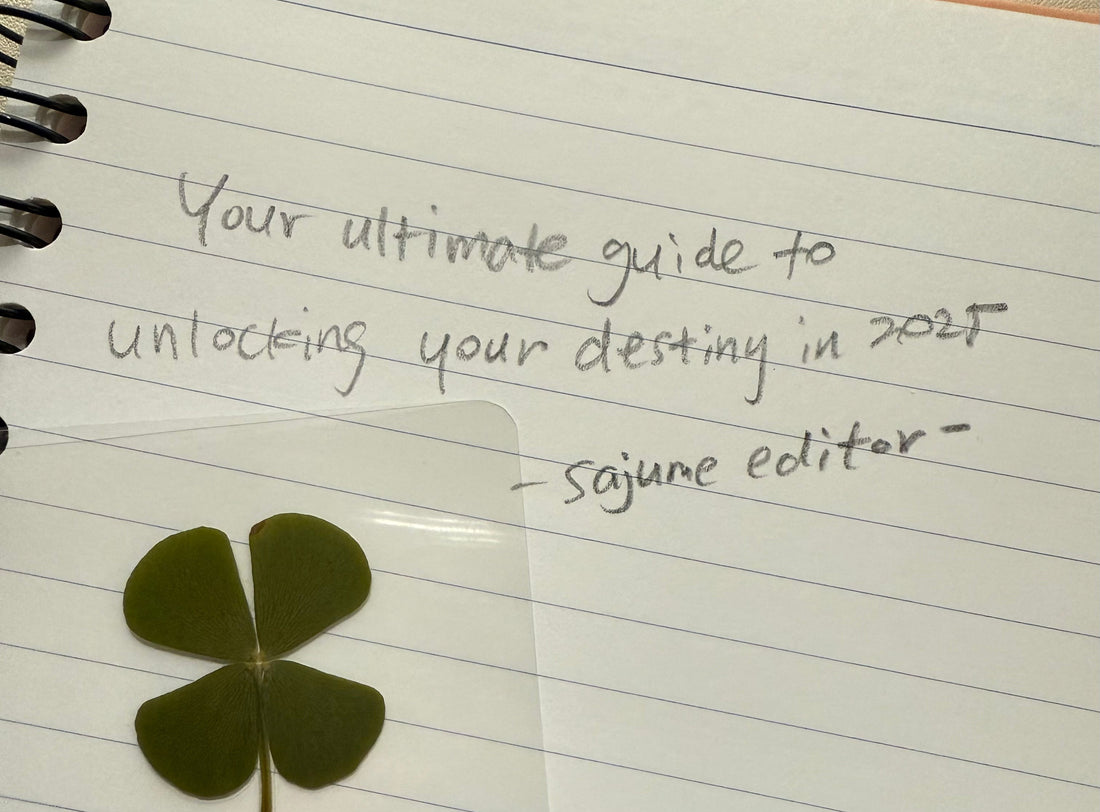 Your ultimate guide to
unlocking your destiny in 2025
- sajume editor -